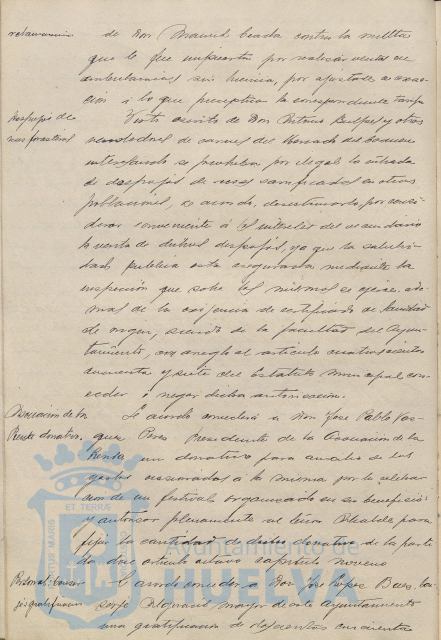 reclamación
de Don Manuel Lozada contra la multa
que le fue impuesta por realizar ventas en
ambulancias sin licencia, por ajustada exac-
ción á lo que preceptúa la correspondiente tarifa
Despojos de
reses forasteras
Visto escrito de Don Antonio y otros
vendedores de carnes del Mercado del
interesando se prohiba por ilegal la entrada
de despojos de reses carnificadas en otras
poblaciones, se acordó, desestimarlo, por consi-
derar conveniente á el interés del vecindario
la venta de dichos despojos, ya que la salubri-
dad pública está asegurada mediante la
inspección que sobre los mismos se ejerce, ade-
más de la exigencia de certificado de Sanidad
de origen, siendo de la facultad del Ayun-
tamiento, con arreglo al artículo cuatrocientos
cuarenta y siete del Estatuto Municipal con-
ceder ó negar dicha autorización.
Asociación de la
Prensa donativo.
Se acordó conceder á Don José Pablo Vaz-
quez Pérez Presidente de la Asociación de la
Prensa un donativo para auxilio de los
gastos ocasionados á la misma por la celebra-
ción de un festival organizado en su beneficio
y autorizar plenamente al Señor Alcalde para
fijar la cantidad de dicho donativo de la parti-
da dos artículo octavo capítulo noveno
Personal:
gratificación
Se acordó conceder á Don José López Baes,
Alguacil mayor de este Ayuntamiento
una gratificación de doscientas cincuenta
Ayuntamiento de
HUELVA
ET TERRÆ
PORTUS MARIS